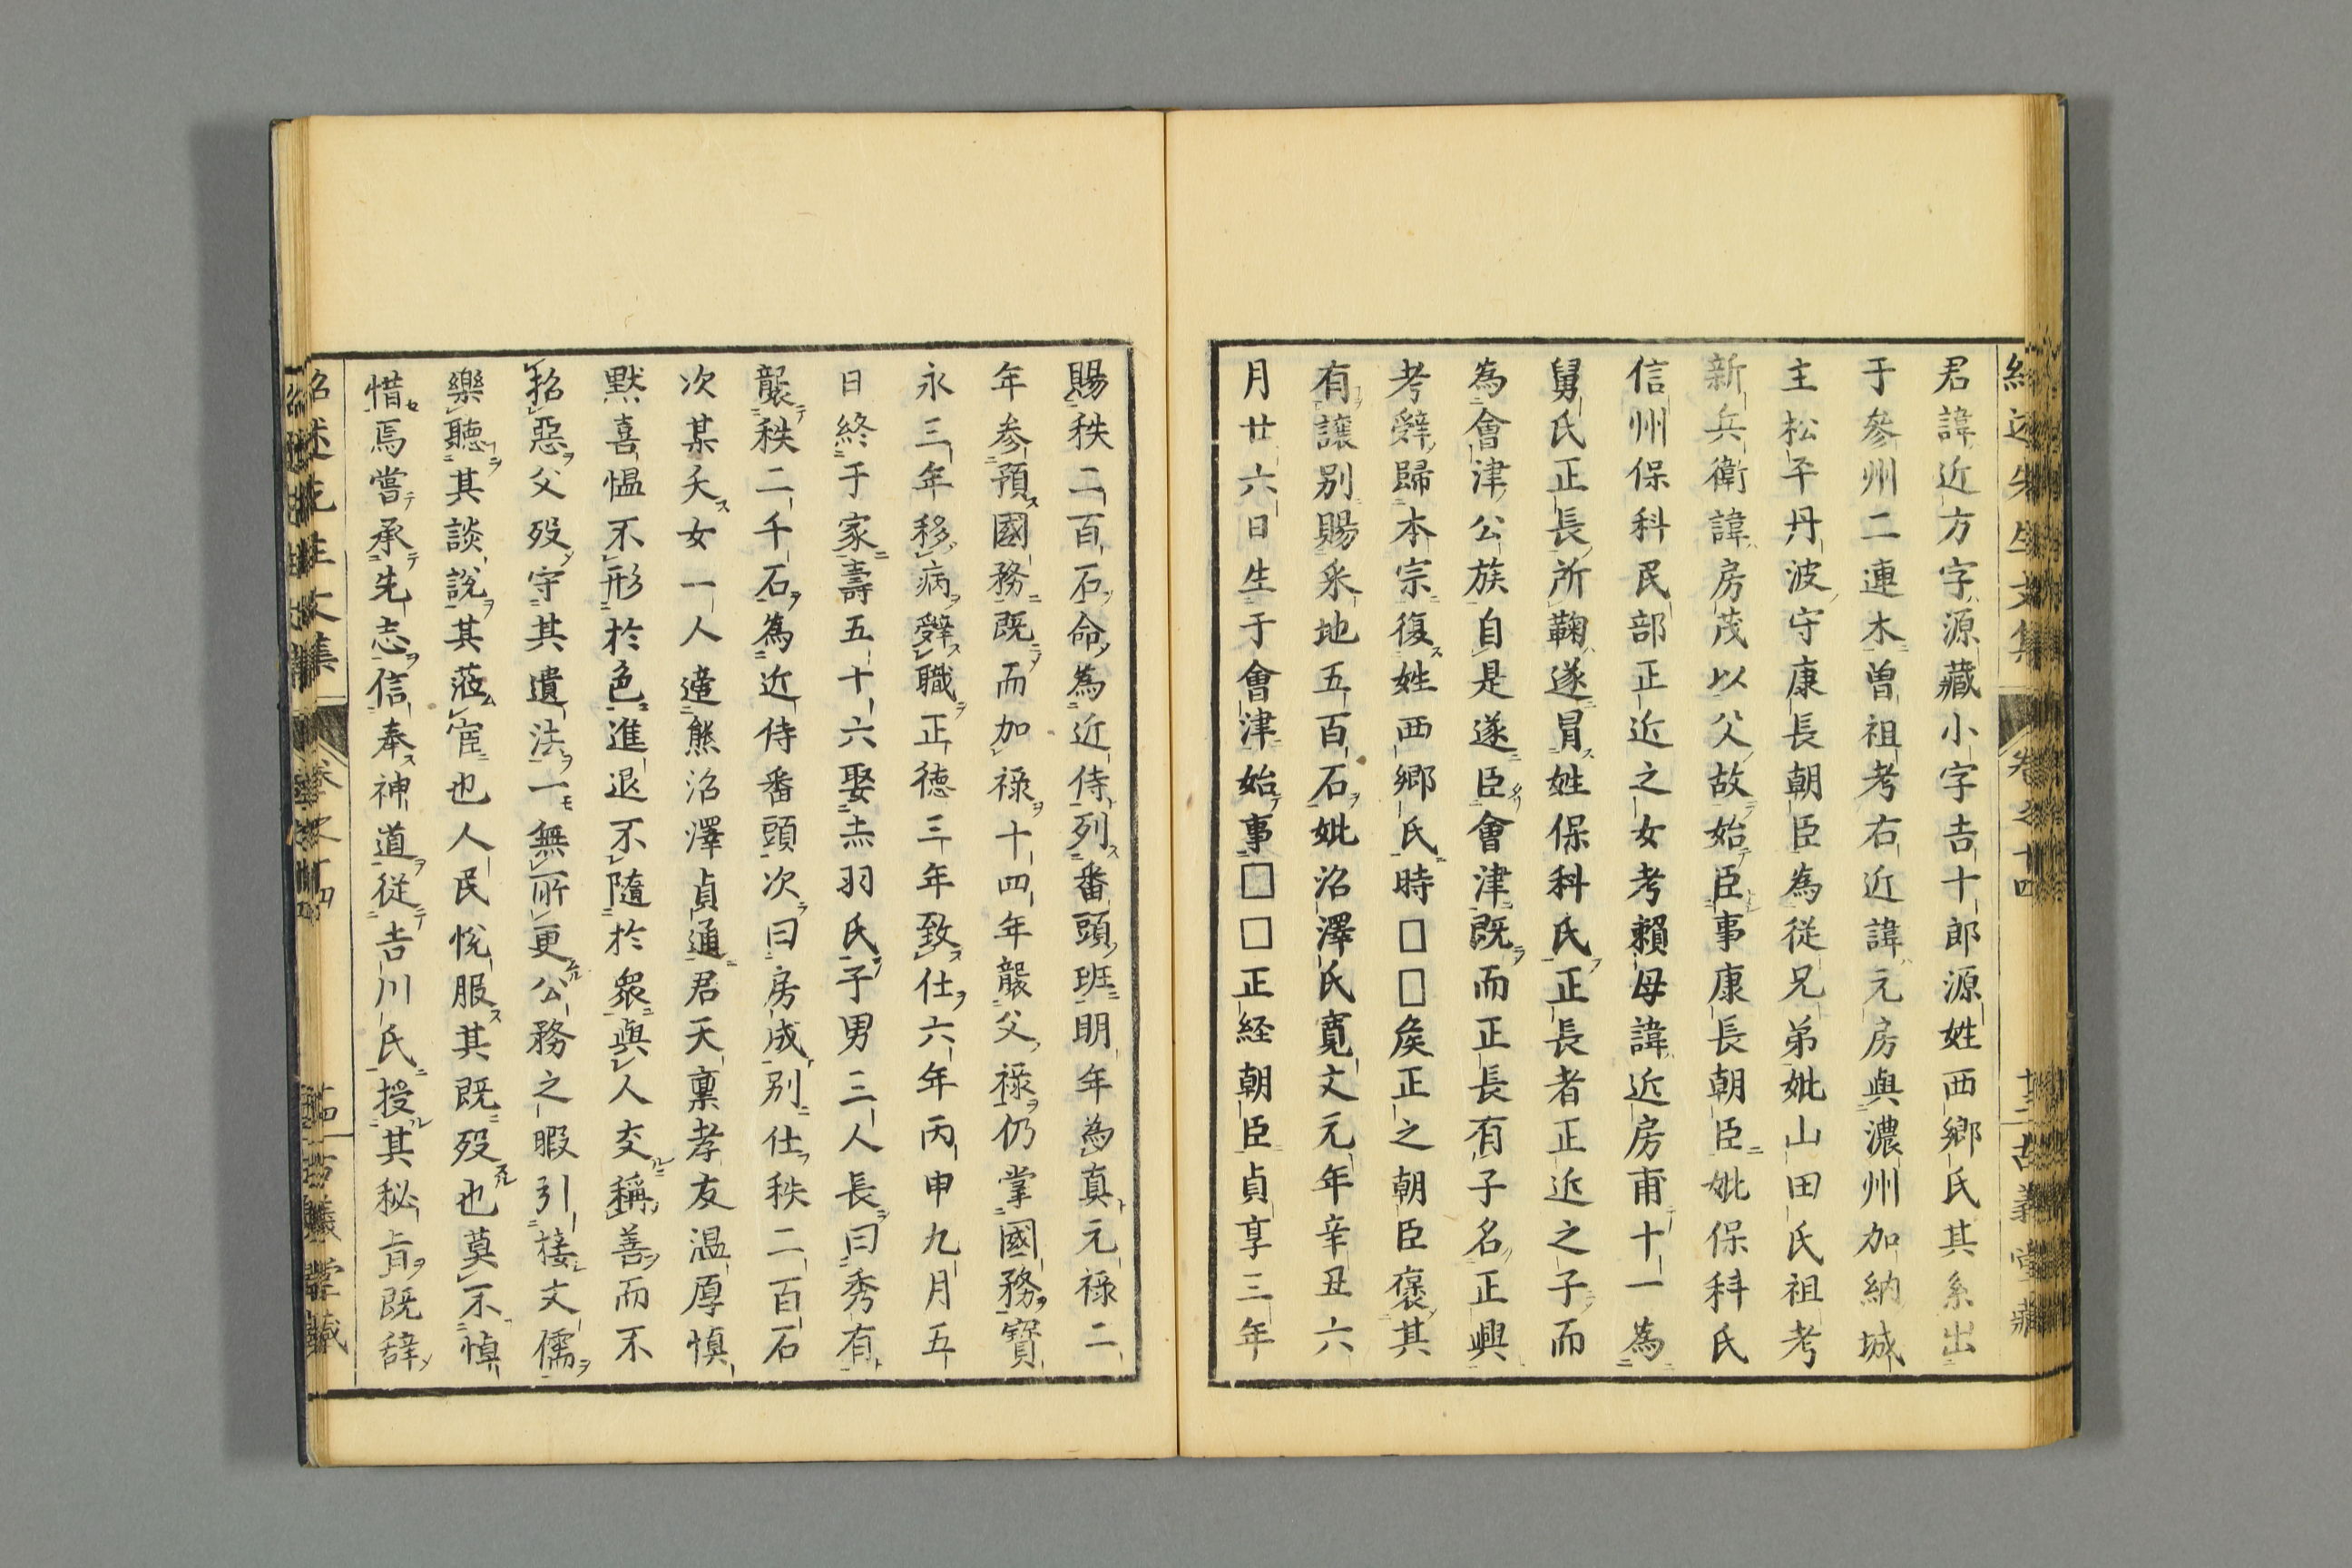 君諱近方字源藏小字吉十郎源姓西郷氏其系出
于參州二連木曽祖考右近諱元房與濃州加納城
主松平丹波守康長朝臣為従兄弟妣山田氏祖考
新兵衛諱房茂以父故始臣事康長朝臣妣保科氏
信州保科民部正近之女考頼母諱近房甫十一為
舅氏正長所鞠遂冐姓保科氏正長者正近之子而
為會津公族自是遂臣會津既而正長有子名正興
考辤歸本宗復姓西郷氏時□□矦正之朝臣褒其
有讓别賜釆地五百石妣沼澤氏寛文元年辛丑六
月廿六日生于會津始事□□正経朝臣貞享三年
賜秩二百石命為近侍列番頭班明年為真元禄二
年参預國務既而加禄十四年襲父禄仍掌國務寳
永三年移病辤職正徳三年致仕六年丙申九月五
日終于家壽五十六娶赤羽氏子男三人長曰秀有
襲秩二千石為近侍番頭次曰房成别仕秩二百石
次某夭女一人適熊沼澤貞通君天稟孝友温厚慎
黙喜愠不形於色進退不隨於衆與人交稱善而不
招惡父歿守其遺法一無所更公務之暇引接文儒
樂聽其談說其蒞宦也人民悅服其既歿也莫不悼
惜焉嘗承先志信奉神道従吉川氏授其秘旨既辞
紹述先生文集 卷之十四 十三 古義堂藏
紹述先生文集 卷之十四 古義堂藏